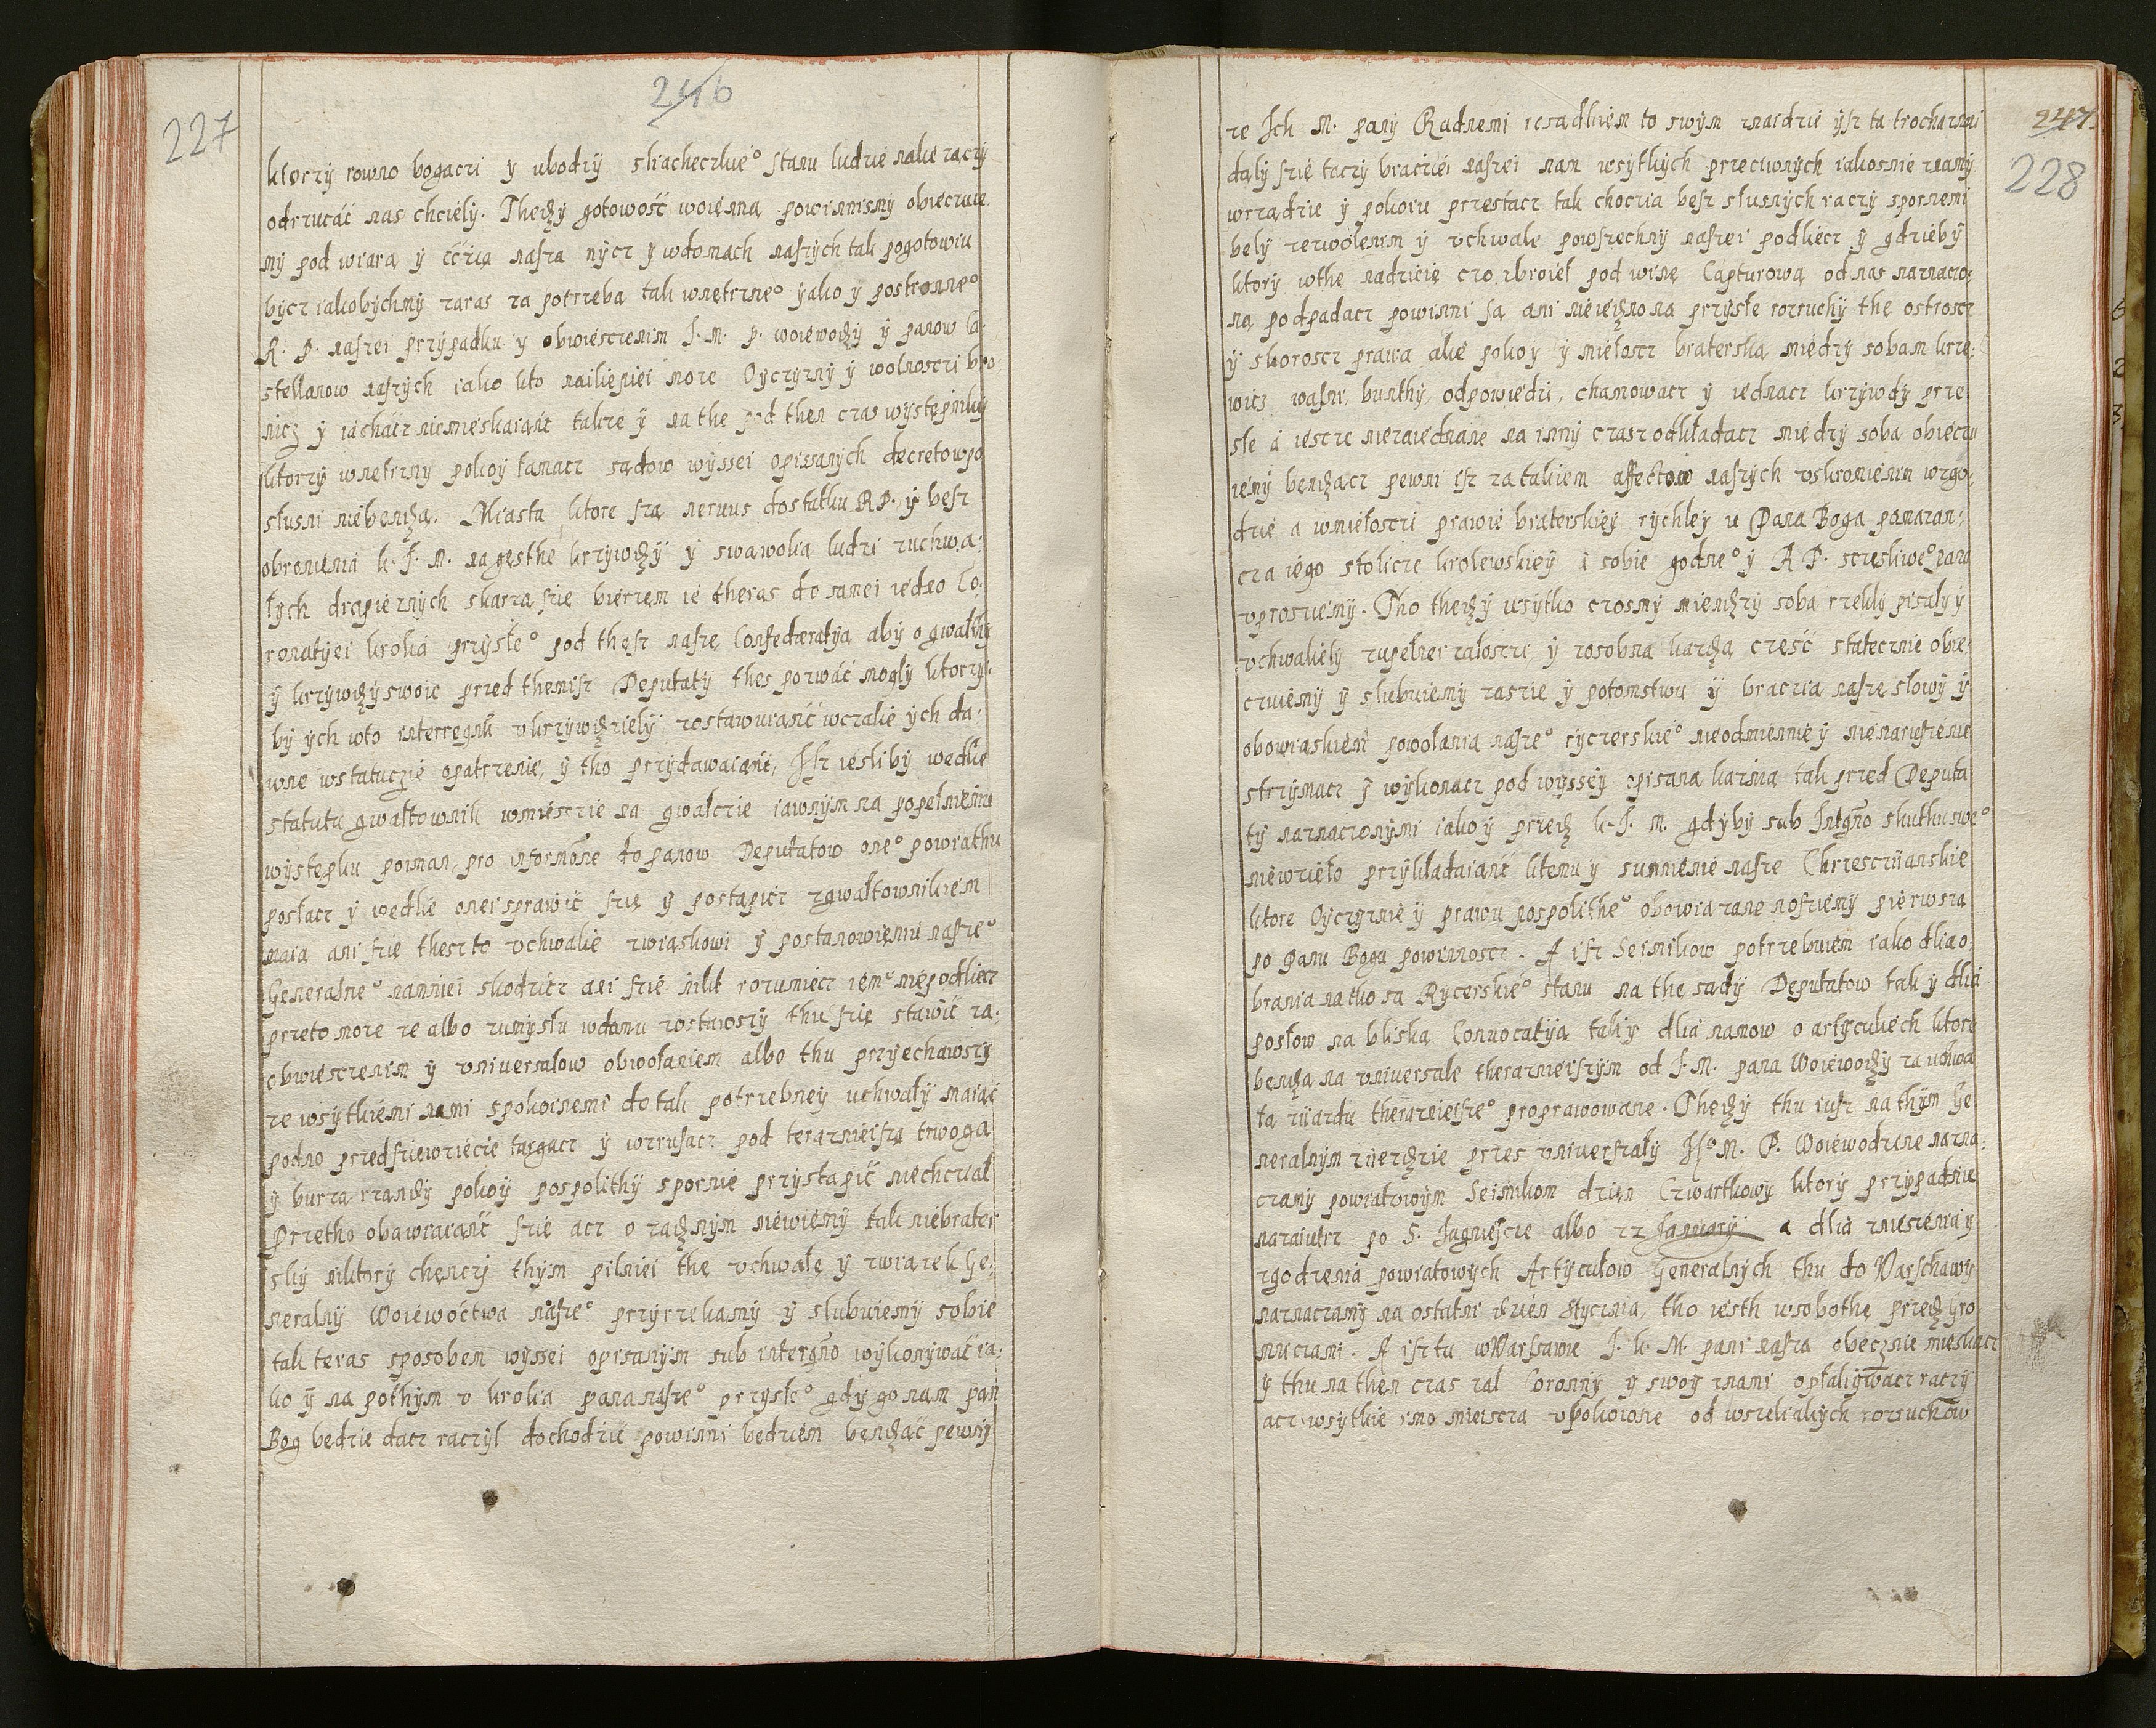 246
227
ktorzÿ rowno bogaczi ÿ ubodzÿ sliacheczkie° stanu ludzie nalie raczÿ
odrzucáć nas chciely. Thedÿ gotowość woienną powinnismÿ obiecziue
mÿ pod wiarą ÿ ććzią naszą nÿcz ÿ wdomach naszÿch tak pogotowiu
bÿcz iakobÿchmÿ zaras za potrzebą tak wnętrzne° ÿako ÿ postronne°
R. P. naszei przÿpadku ÿ obwiesczenim J. M. P. woiewodÿ ÿ panow ca:
stellanow naszÿch iako kto nailiepiei може Oÿczÿznÿ ÿ wolnosczi bro
nicz ÿ iáchácz niemieskaiąńc także ÿ na the pod then czas wÿstępnikÿ
ktorzÿ wnętrznÿ pokoÿ łamacz sądow wÿssei opissanÿch decretow po
słusni niebendą. Miasta ktore są neruus dostatku RP. ÿ besz
obronienia k. J. M. na gęsthe krzÿwdÿ ÿ swawolią ludzi zuchwa:
łÿch drapieznÿch skarzą sie bierzem ie theras do samei iedno Co:
ronatÿei krolia przÿsłe° pod thesz naszę Confederatÿą abÿ o gwałthÿ
ÿ krzÿwdÿ swoie przed themisz Deputatÿ thes pozwáć moglÿ ktorzÿ
bÿ ÿch wto interregnū ukrzÿwdzielÿ zostawuiąńć wczalie ÿch da:
wne wstatuczie opatrzenie, ÿ tho przÿdawaiąńc, Jsz iesli bÿ wedlie
statutu gwałtownik wmiesczie na gwałczie iawnÿm na popełnięniu
wÿstępku poiman, pro informōne do panow Deputatow one° powiathu
posłacz ÿ wedlie onei sprawić się ÿ postąpicz zgwałtownikiem
maią ani sie thesz to uchwalie związkowi ÿ postanowieniu nasze°
Generalne° namniei skodzicz ani sie nikt rozumiecz iem° niepodliecz
przeto може ze albo zumÿsłu wdomu zostawszÿ thu się stawić za
obwiesczenim ÿ uniuersałow obwołaniem albo thu przÿechawszÿ
ze wsÿtkiemi nami spokoinemi do tak potrzebneÿ uchwałÿ maiąć
podno przedsiewziecie targacz ÿ wzrusacz pod terazniejszą trwogą
ÿ burzą rzandÿ pokoÿ pospolithÿ spornie przÿstąpić niechciał
Przetho obawiaiąńć sie acz o zadnÿm niewiemÿ tak niebrater
skÿ niktorÿ chęnczÿ thÿm pilniei thę uchwałę ÿ związek Ge:
neralnÿ Woiewoćtwa nasze° przÿrzekamÿ ÿ slubuiemÿ sobie
tak teras sposobem wÿssei opisanÿm sub intergño wÿkonÿwáć ia:
ko ÿ na pothÿm u krolia pana nasze° przÿsłe° gdÿ go nam pan
Bog bedzie dacz raczÿl dochodzić powinni bedziem bendąć pewnÿ
247
228
ze Jch M. panÿ Radnemi rosądkiem to swÿm znaidzie ÿsz ta trocha znai
dalÿ sie taczÿ braciei naszei nam wsÿtkich przeciwnÿch iakosnie mamÿ
wrządzie ÿ pokoiu przestacz tak choczia besz słusnÿch raczÿ spornemi
belÿ zezwolienim ÿ uchwale powszechnÿ naszei podliecz ÿ gdziebÿ
ktorÿ wthe nadzieię czo zbroieł pod winę Capturową od nas naznaczo:
ną podpadacz powinni są ani niewiedno na przÿsłe rozruchÿ thę ostroscz
ÿ skoroscz prawa alie pokoÿ ÿ miełoscz braterską miedzÿ sobam krze:
wicz wasni, bunthÿ, odpowiedzi, chamowacz ÿ iednacz krzÿwdÿ prze
słe á iescze nieziednane na innÿ czasz odkładacz miedzÿ sobą obieczu
iemÿ bendącz pewni isz za takiem affectow naszÿch uskromienim wzgo:
dzie a wmiełosczi prawie braterskieÿ rÿchleÿ u Pana Boga pomazan:
cza iego stolicze krolewskieÿ i sobie godne° ÿ R P. sczęsliwe° pana
uprosiemÿ. Tho thedÿ wsÿtko czosmÿ miendzÿ sobą rzeklÿ pisalÿ ÿ
uchwalielÿ zupełnei całosczi ÿ zosobna każdą cześć statecznie obie:
czuiemÿ ÿ slubuiemÿ zasie ÿ potomstwu ÿ braczia nasze słowÿ ÿ
obowiąskiem powołania nasze° rÿczerskie° nieodmiennie ÿ nienaruszenie
strzÿmacz ÿ wÿkonacz pod wÿsseÿ opisaną kaźnią tak przed Deputa
tÿ naznaczonÿmi iako ÿ przed k. J. M. gdÿbÿ sub Intgño skuthku swe°
niewzieło przÿkładaiąńć ktemu ÿ sumnienie nasze Chrzesczÿanskie
ktore Oÿczÿznie ÿ prawu pospolithe° obowiązane nosiemÿ pierwszą
po panu Bogu powinnoscz. A isz Seimikow potrzebuiem iako dlia o:
brania natho sa Rÿcerskié° stanu na the sądÿ Deputatow tak ÿ dlia
posłow na bliską Conuocatÿą takÿ dlia namow o artÿculiech ktore
bendą na uniuersale therazniejszÿm od J. M. pana Woiewodÿ za uchwa
łą ziazdu therazniejsze° proprawowane. Thedÿ thu iusz na thÿm Ge
neralnÿm zieżdzie przes uniuersałÿ Js° M. P. Woiewodzine nazna:
czamÿ powiatowÿm Seimikom dzięn Czwartkowÿ ktorÿ przÿpadnie
nazaiutrz po S. Jagniesce albo 22 Januarÿ a dlia zniesienia ÿ
zgodzenia powiatowÿch Artÿcułow Generalnÿch thu do Warschawÿ
naznaczamÿ na ostatni dzien Stÿcznia, tho iesth wsobothę przed Gro:
mniczami. A isz tu wWarszawie J. K. M. pani nasza obecznie mieskacz
ÿ thu na then czas zal Coronnÿ ÿ swoÿ znami opłakÿwacz raczÿ
acz wsÿtkie ino miescza upokoione od wszeliakÿch rozruchow